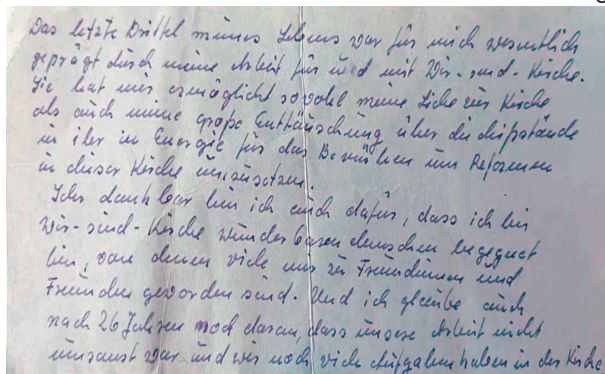 Das letzte Drittel meines Lebens war für mich wesentlich
geprägt durch meine Arbeit für und mit Wir-sind-Kirche.
Sie hat mir ermöglicht sowohl meine Liebe zur Kirche
als auch meine große Enttäuschung über die Mißstände
in ihr in Energie für das Bemühen um Reformen
in dieser Kirche umzusetzen.
Sehr dankbar bin ich auch dafür, dass ich bei
Wir-sind-Kirche wunderbaren Menschen begegnet
bin, von denen viele mir zu Freundinnen und
Freunden geworden sind. Und ich glaube auch
nach 26 Jahren noch daran, dass unsere Arbeit nicht
umsonst war und wir noch viele Aufgaben haben in der Kirche.